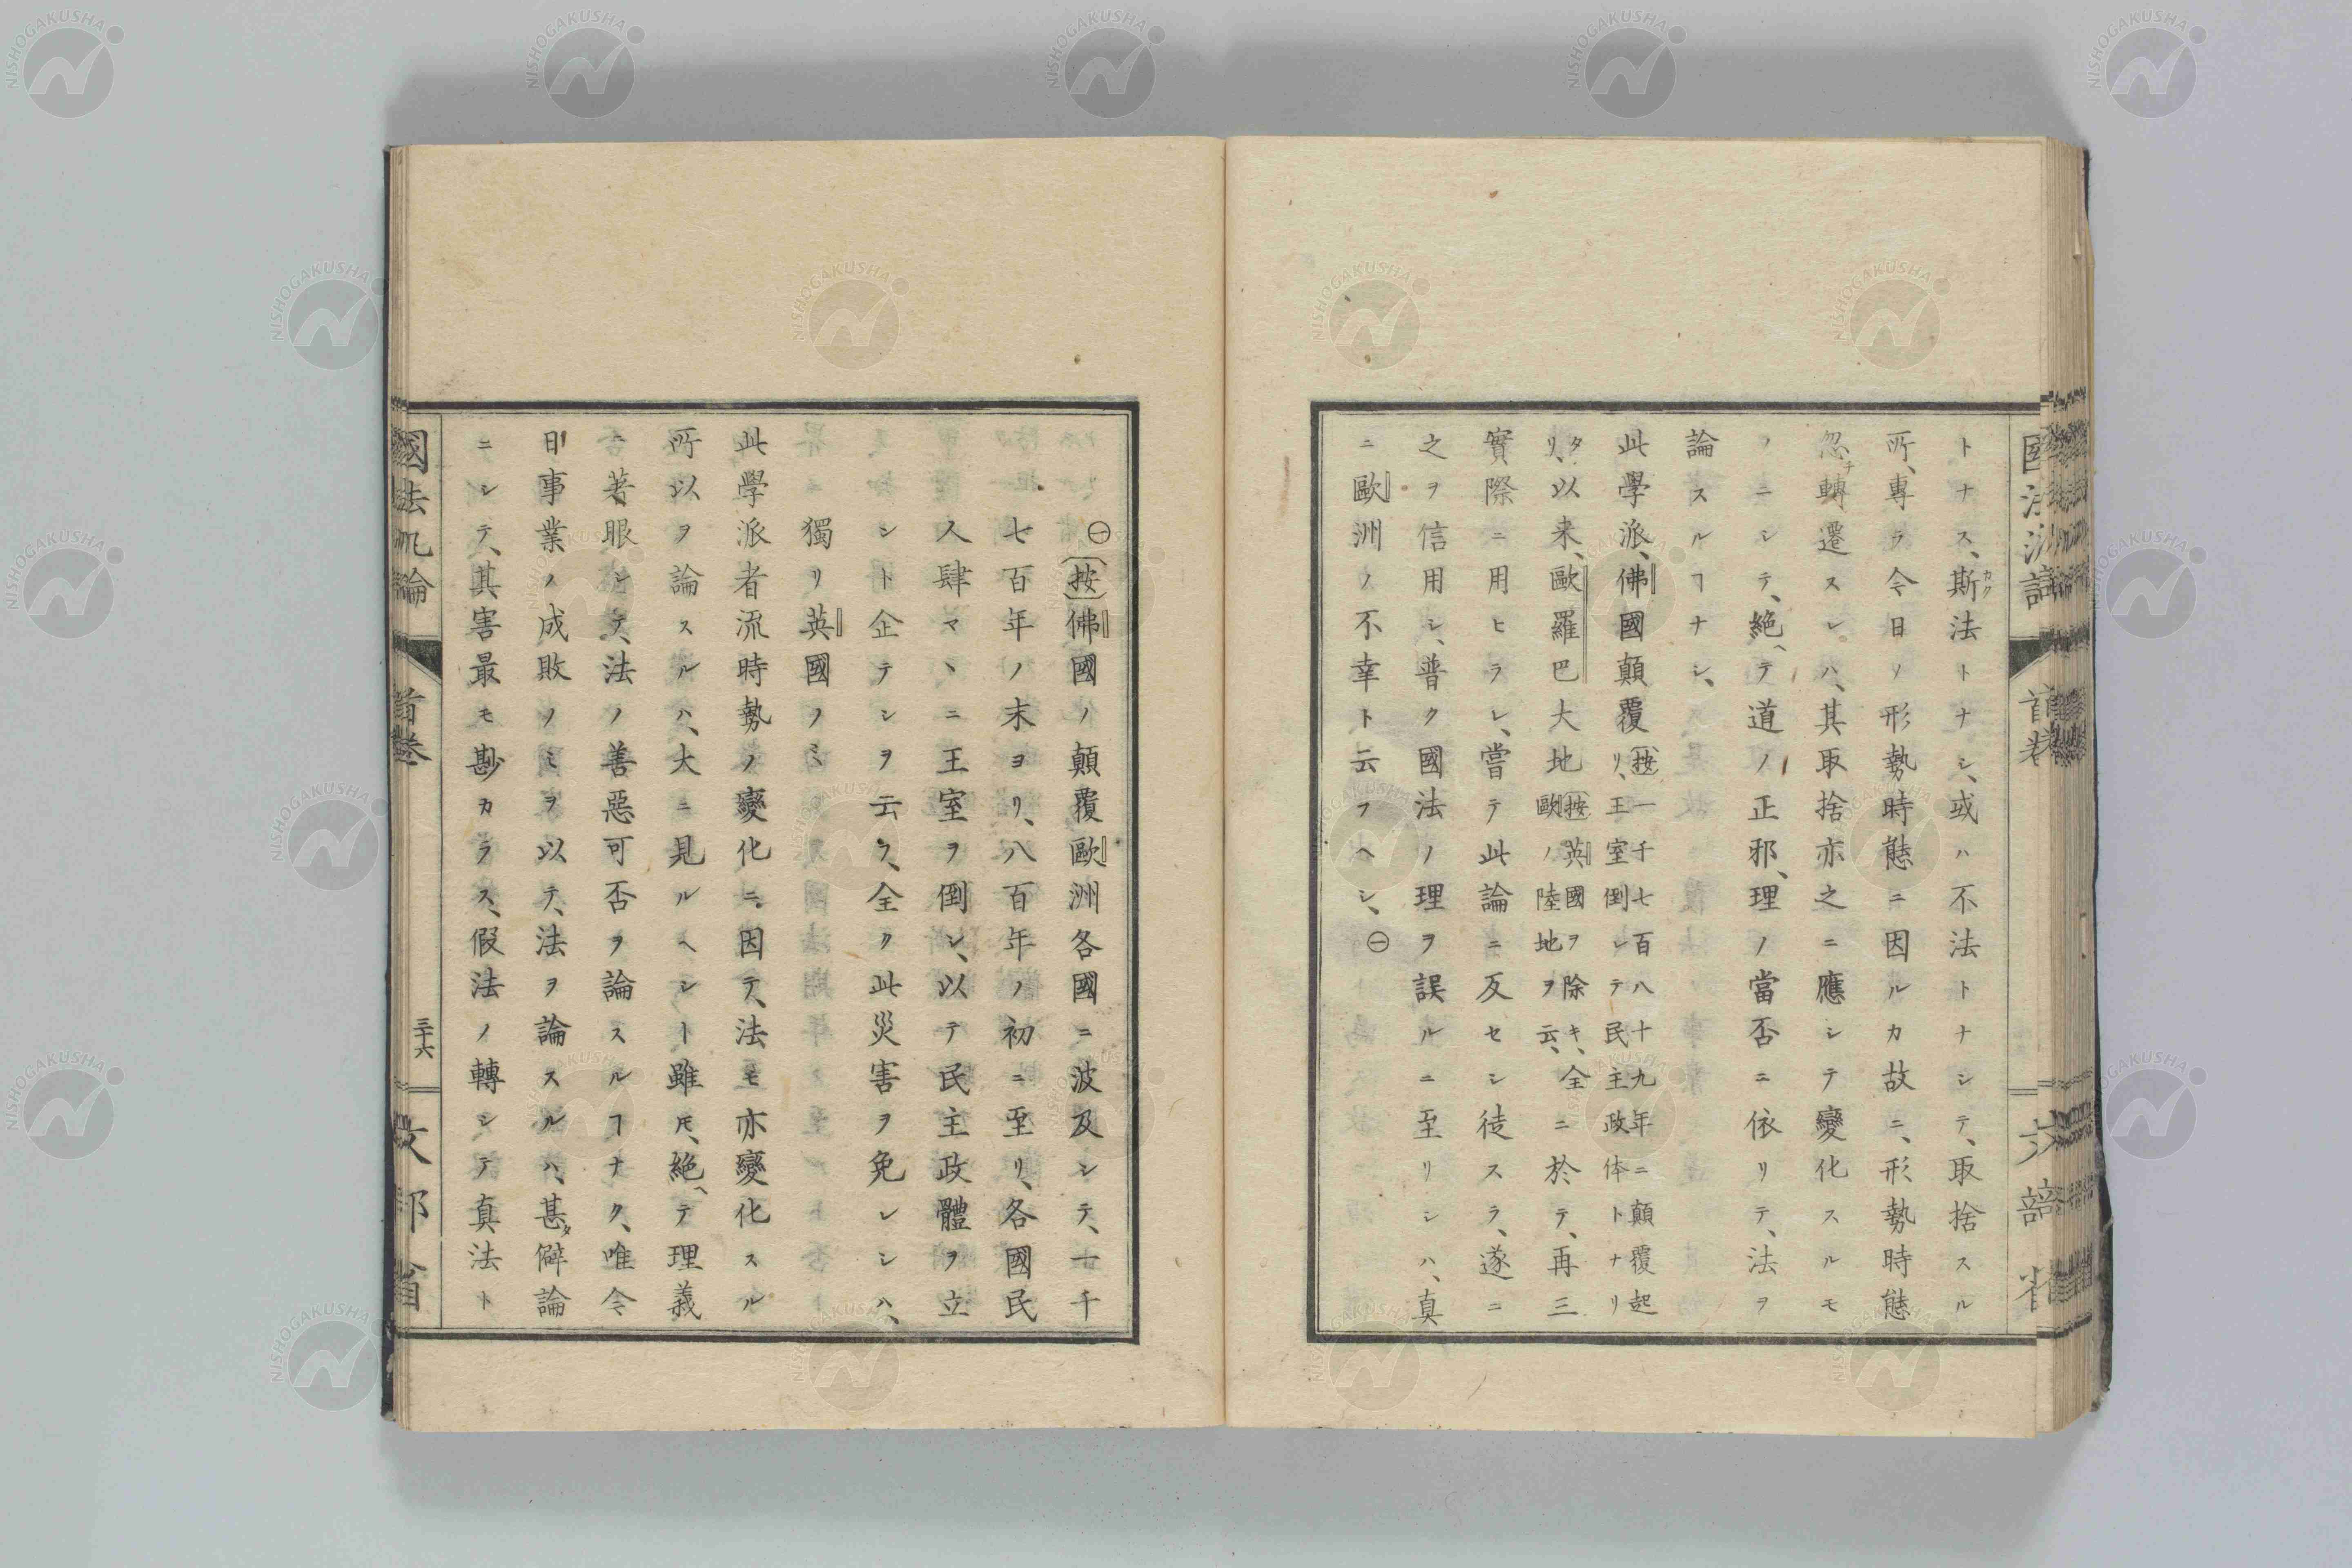 トナス、斯法トナシ、或ハ不法トナシテ、取捨スル
所、專ラ今日ノ形勢時態ニ因ルカ故ニ、形勢時態
忽チ轉遷スレハ、其取捨亦之ニ應シテ變化スルモ
ノニシテ、絶ヘテ道ノ正邪、理ノ當否ニ依リテ、法ヲ
論スルヿナシ、
此學派、佛國顛覆(按)一千七百八十九年ニ顛覆起リ、王室倒レテ民主政体トナリ
タリ、以来、歐羅巴大地(按)英國ヲ除キ、全歐ノ陸地ヲ云、ニ於テ、再三
實際ニ用ヒラレ、嘗テ此論ニ反セシ徒スラ、遂ニ
之ヲ信用シ、普ク國法ノ理ヲ誤ルニ至リシハ、真
ニ歐洲ノ不幸ト云フヘシ、㊀
㊀(按)佛國ノ顛覆歐洲各國ニ波及シテ、一千
七百年ノ末ヨリ、八百年ノ初ニ至リ、各國民
人肆マヽニ王室ヲ倒シ、以テ民主政體ヲ立
ント企テシヲ云フ、全ク此災害ヲ免レシハ、
獨リ英國ノミ
此學派者流時勢ノ變化ニ因テ、法モ亦變化スル
所以ヲ論スルハ、大ニ見ルヘシト雖𪜈、絶ヘテ理義
ニ著眼シテ、法ノ善惡可否ヲ論スルヿナク、唯今
日事業ノ成敗ノミヲ以テ、法ヲ論スルハ、甚タ僻論
ニシテ、其害最モ尠カラス、假法ノ轉シテ真法ト
國法汎論
首卷
三十六
文部省